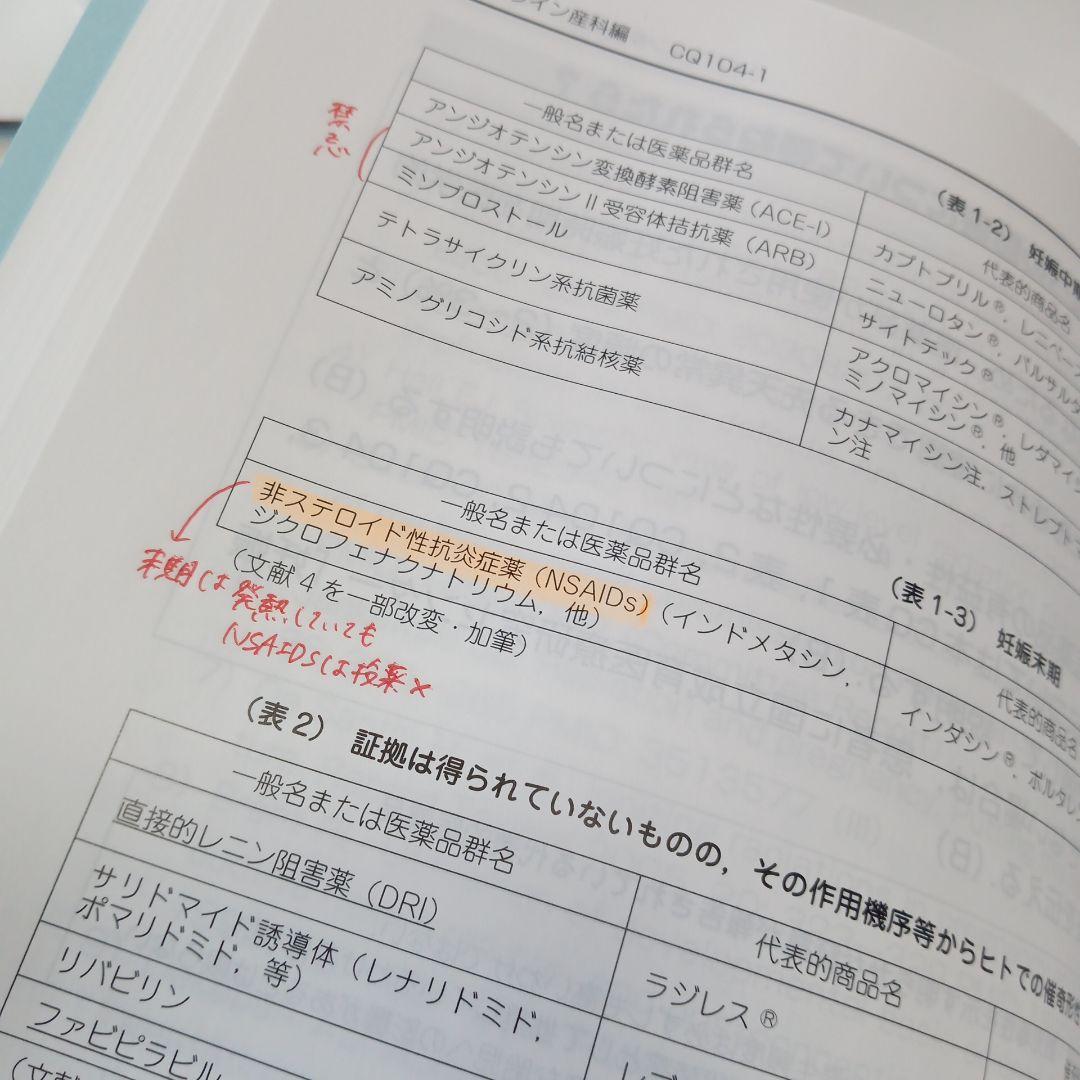 ライン産科編 CQ104-1
(表1-2) 妊娠中期
一般名または医薬品群名 代表的商品名
アンジオテンシン変換酵素阻害薬(ACE-I) カプトプリル®,レニベース
アンジオテンシンⅡ受容体拮抗薬(ARB) ニューロタン®,バルサルタ
ミソプロストール サイトテック®
テトラサイクリン系抗菌薬 アクロマイシン®,レダマイシ
ミノマイシン®,他
アミノグリコシド系抗結核薬 カナマイシン注,ストレプトマ
ン注
禁忌
(表1-3) 妊娠末期
一般名または医薬品群名 代表的商品名
非ステロイド性抗炎症薬(NSAIDs)(インドメタシン, インダシン®,ボルタレ
ジクロフェナクナトリウム,他)
(文献4を一部改変・加筆)
末期は発熱していても
NSAIDsは投薬×
(表2) 証拠は得られていないものの,その作用機序等からヒトでの催奇形性
一般名または医薬品群名 代表的商品名
直接的レニン阻害薬(DRI) ラジレス®
サリドマイド誘導体(レナリドミド,
ポマリドミド,等)
リバビリン
ファビピラビル
(文献